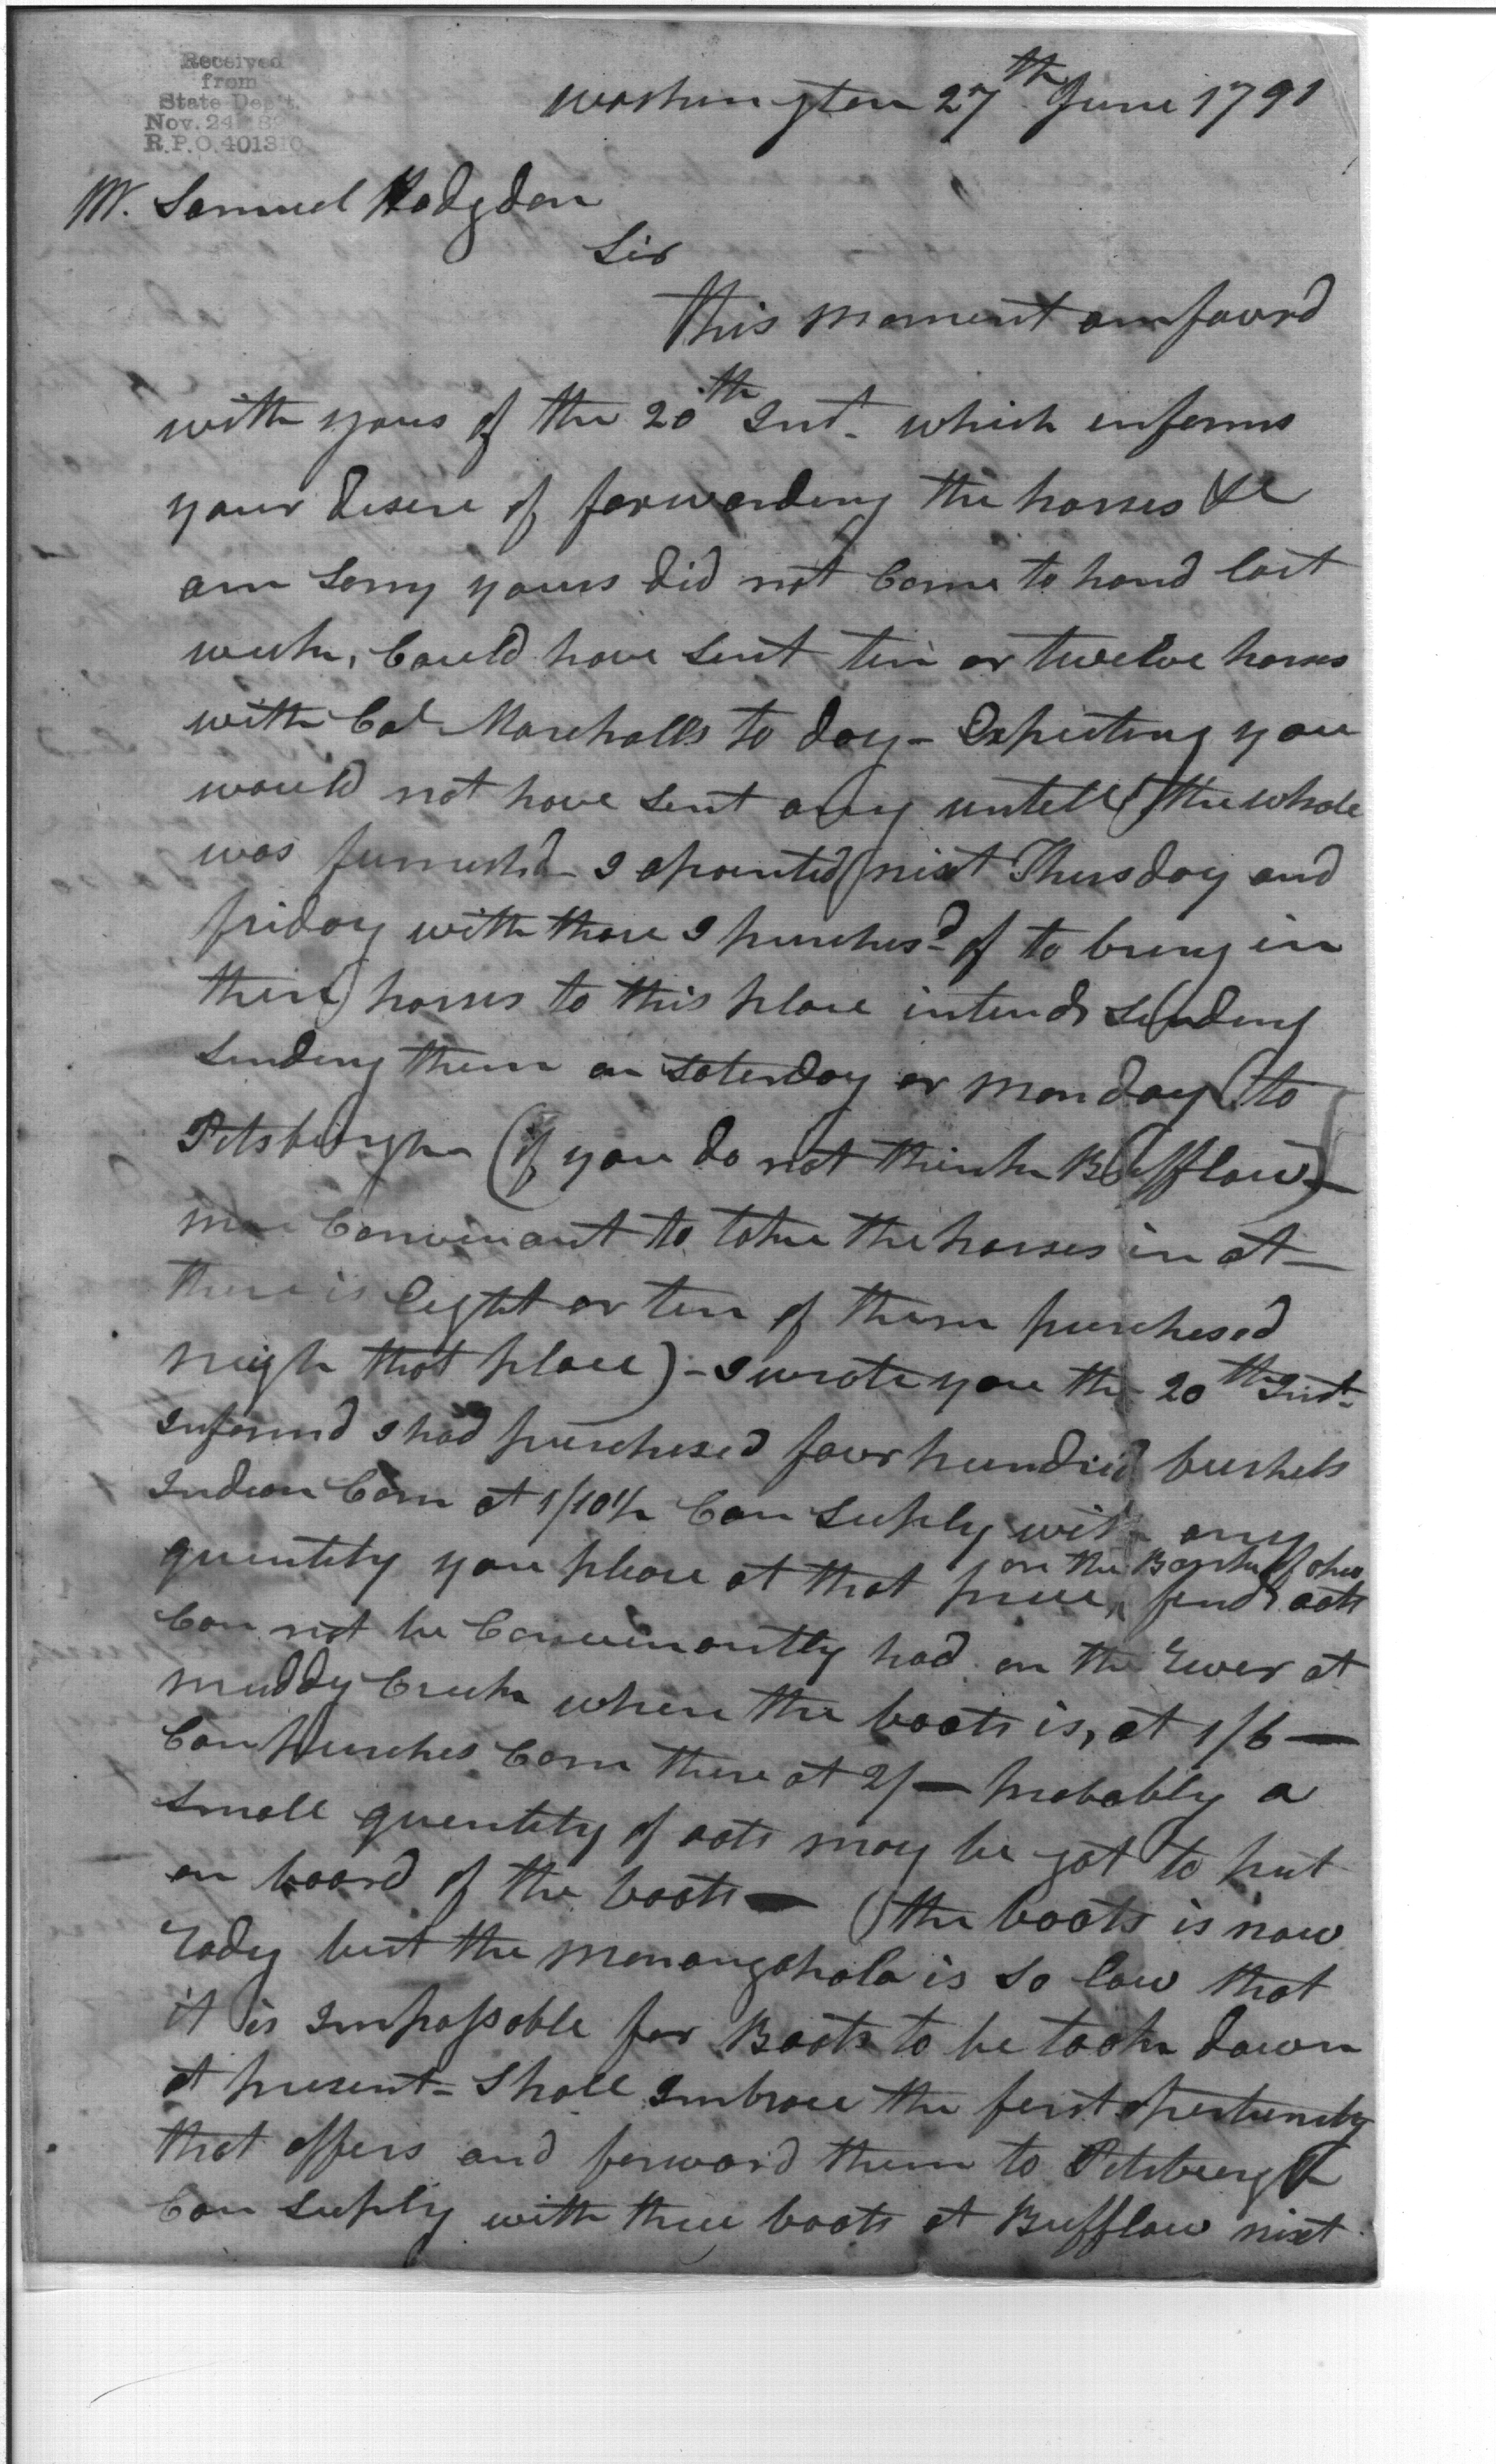 Received
from
State Dep't.
Nov. 24
R.P.O. 401310
Washington 27th June 1791
Mr. Samuel Hodgdon
Sir
This moment am favrd
with yours of the 20th Inst. which informs
your desire of forwarding the horses &c
am sorry yours did not Come to hand last
week, Could have sent ten or twelve horses
with Col Marshalls to day - Expecting you
would not have sent any untell the whole
was furnishd - I apointed next Thursday and
friday with those I purchesd of to bring in
their horses to this place intend sending
sending them on Saterday or Monday to
Pitsburgh (if you do not think Bufflow)
more Convenant to take the horses in at -
there is Eight or ten of them purchesed
neigh that place) - I wrote you the 20th Inst.
Informd I had purchesed four hundred bushels
Indean Corn at 1/10½ Can Suply with any
quentity you pleas at that price on the Banks of Ohio, find oats
Can not be Convenantly had on the River at
Muddy Creek where the boats is, at 1/6 —
Can purches Corn there at 2/ — probably a
Small quentity of oats may be got to put
on board of the boats — the boats is now
Rady but the Monongahala is so low that
it is Impossable for Boats to be took down
at present - Shall Imbrace the first opertunity
that offers and forward them to Pitsburgh
Can suply with three boats at Bufflow next